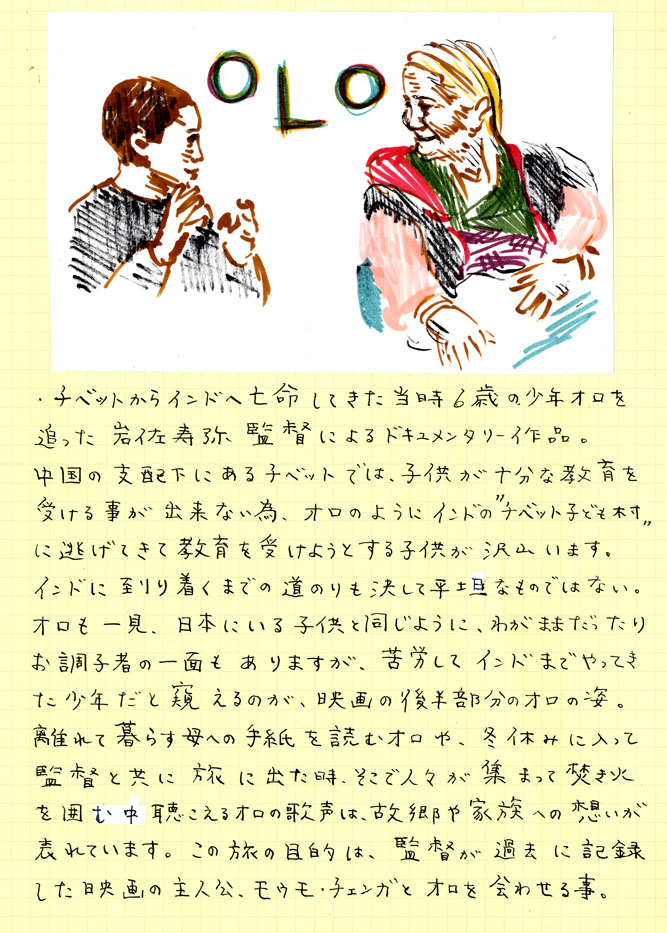 OLO
・チベットからインドへ亡命してきた当時6歳の少年オロを
追った岩佐寿弥監督によるドキュメンタリー作品。
中国の支配下にあるチベットでは、子供が十分な教育を
受ける事が出来ない為、オロのようにインドの"チベット子ども村"
に逃げてきて教育を受けようとする子供が沢山います。
インドに到り着くまでの道のりも決して平坦なものではない。
オロも一見、日本にいる子供と同じように、わがままだったり
お調子者の一面もありますが、苦労してインドまでやってき
た少年だと窺えるのが、映画の後半部分のオロの姿。
離れて暮らす母への手紙を読むオロや、冬休みに入って
監督と共に旅に出た時、そこで人々が集まって焚き火
を囲む中聴こえるオロの歌声は、故郷や家族への想いが
表れています。この旅の目的は、監督が過去に記録
した映画の主人公、モゥモ・チェンガとオロを会わせる事。